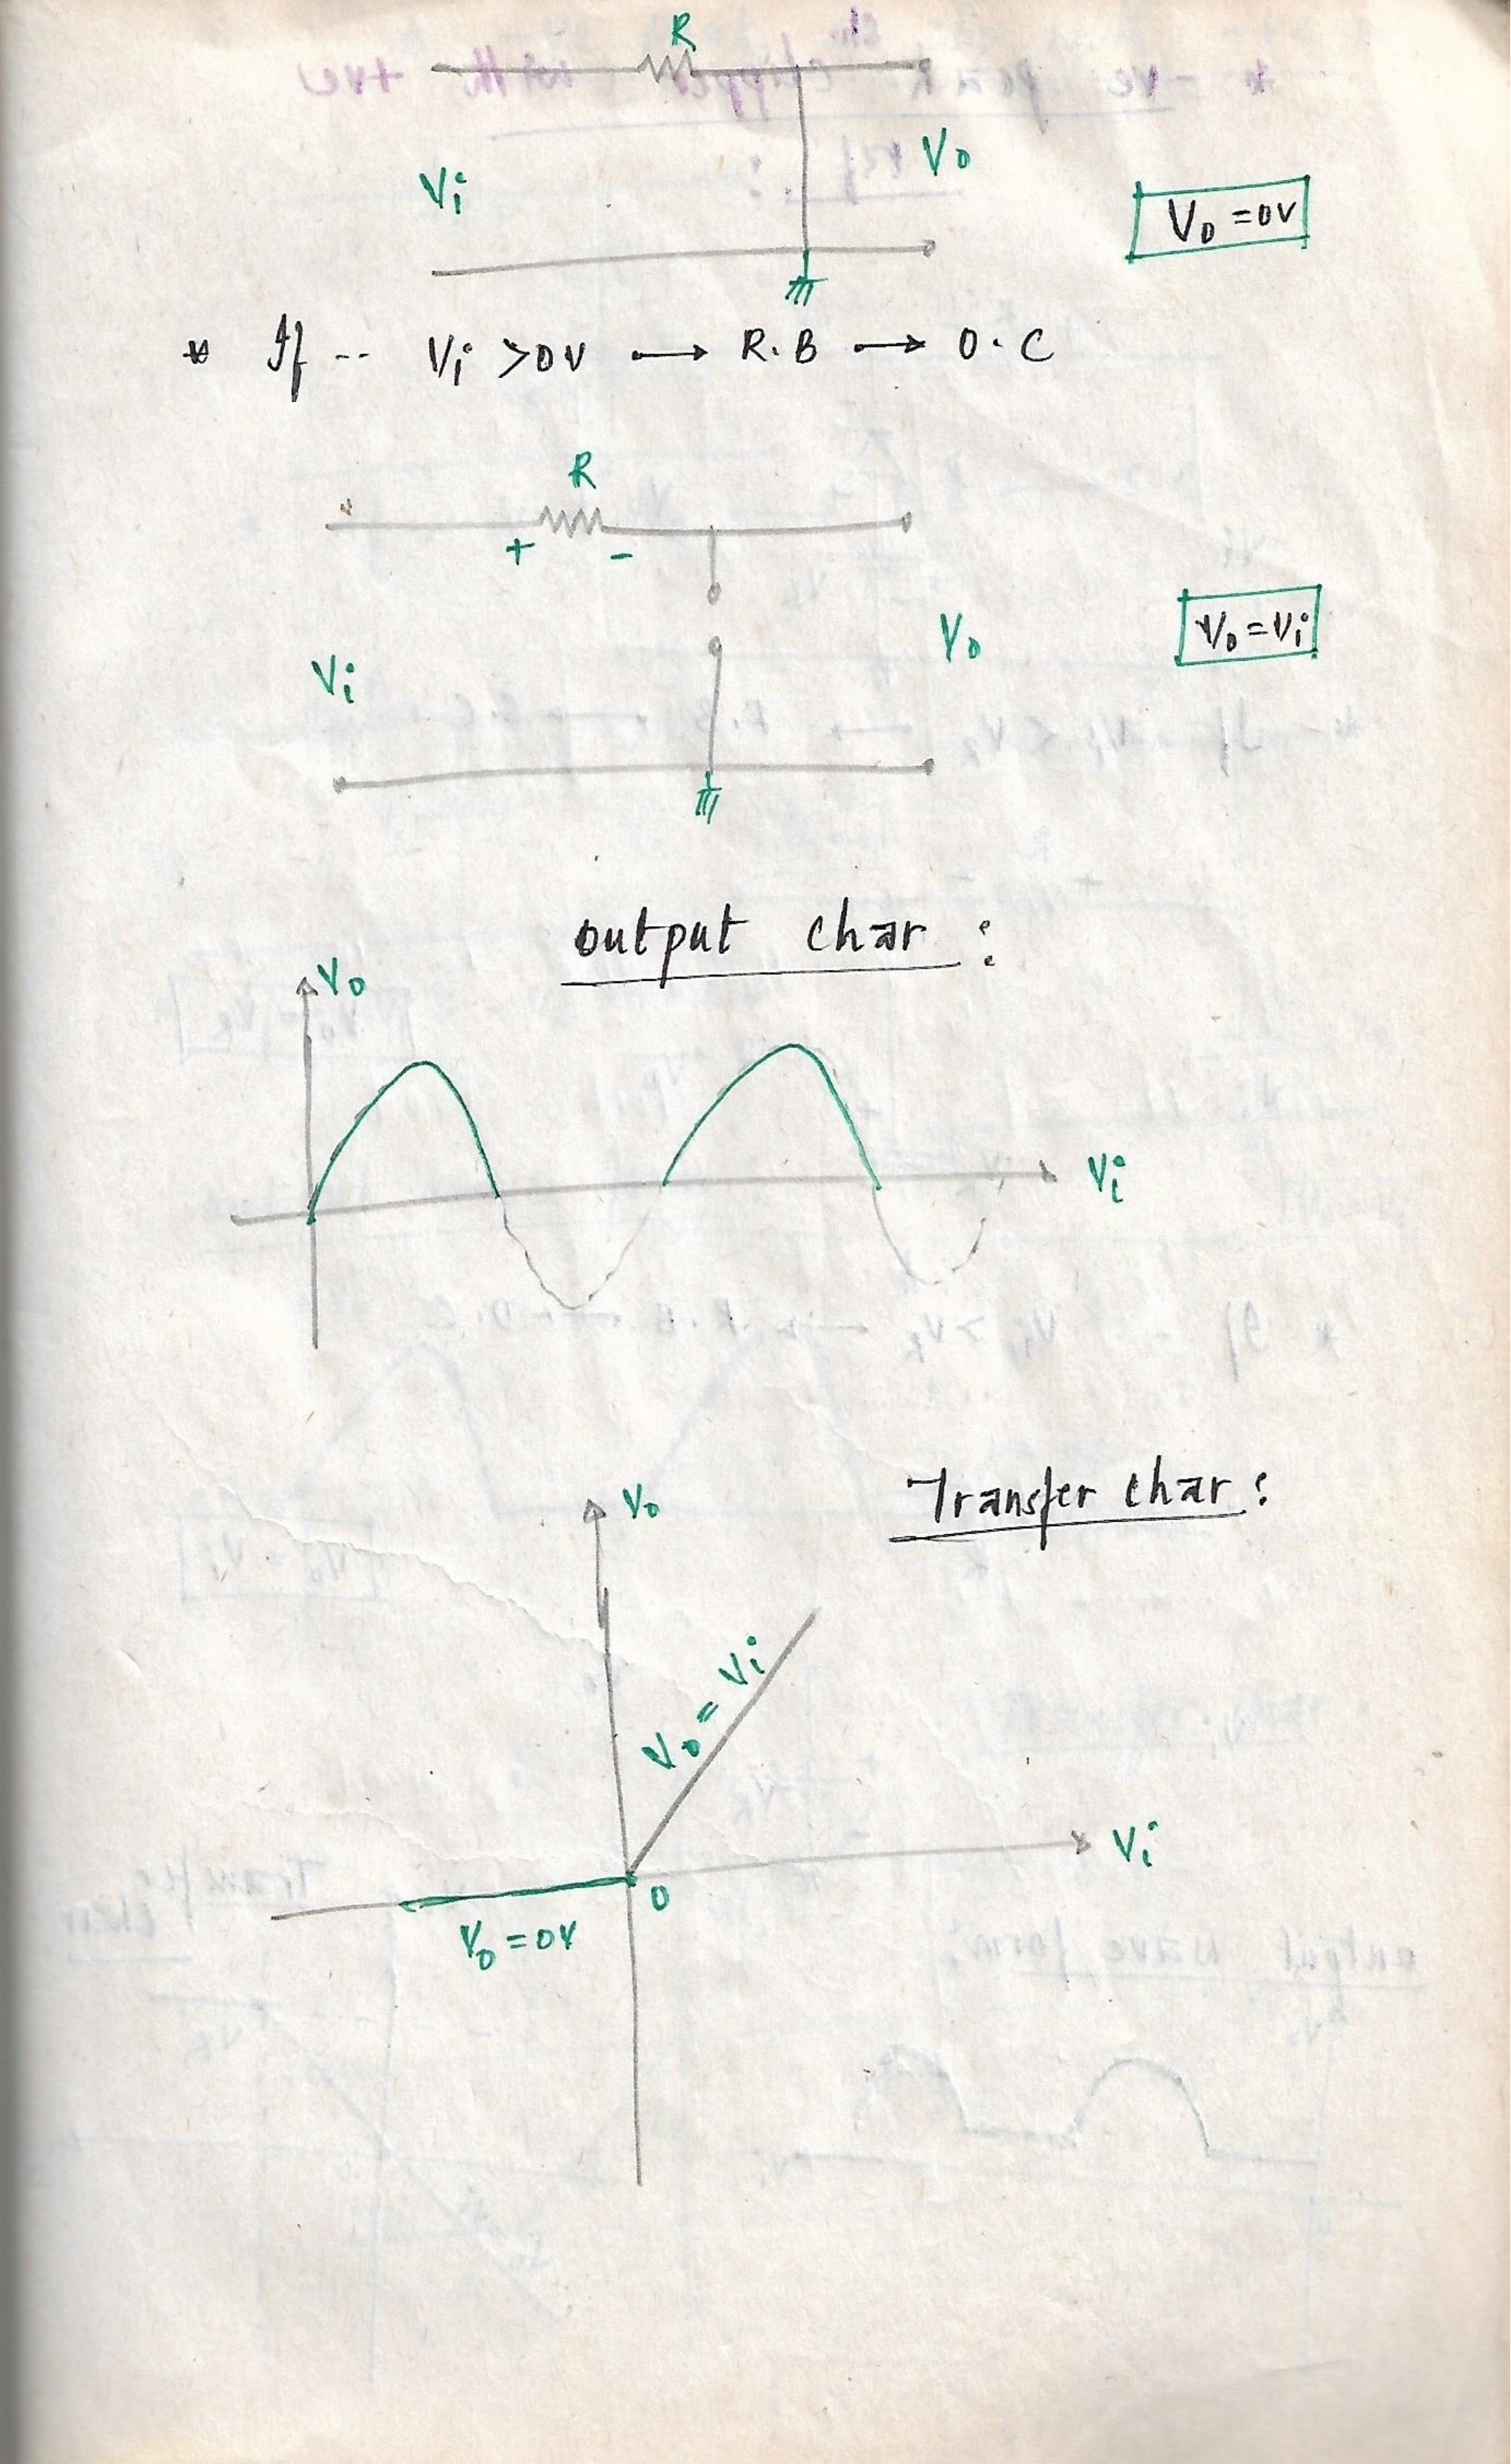 R
Vi
Vo
Vo = 0V
* If -- Vi > 0V → R.B → O.C
R
+ -
Vi
Vo
Vo = Vi
output char :
Vo
Vi
Transfer char :
Vo
Vo = Vi
Vi
0
Vo = 0V